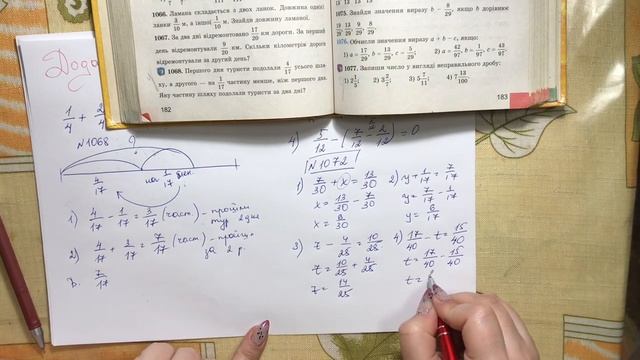 1066. Ламана складається з двох ланок. Довжина однієї
ланки 3/10 м, а іншої 1/10 м. Знайди довжину ламаної.
1067. За два дні відремонтовано 17/20 км дороги. За перший
день відремонтували 9/20 км. Скільки кілометрів дороги
відремонтували за другий день?
1068. Першого дня туристи подолали 4/17 усього шля-
ху, а другого — на 1/17 частину менше, ніж першого дня.
Яку частину шляху подолали туристи за два дні?
182
1075. Знайди значення виразу b − 8/29, якщо b дорівнює
19/29; 13/29; 9/29; 8/29.
1076. Обчисли значення виразу a + b − c, якщо:
1) a = 17/29, b = 13/29, c = 5/29; 2) a = 42/97, b = 1/97, c = 43/97.
1077. Запиши число у вигляді неправильного дробу:
1) 2 1/5; 2) 3 2/7; 3) 5 7/11; 4) 7 13/100.
183
Додо
1/4 + 2/4
N1068
?
4/17
на 1/17 >
1) 4/17 − 1/17 = 3/17 (част) -
2) 4/17 + 3/17 = 7/17 (част) -
за 2 д.
В. 7/17
4) 5/12 − (7/12 − 2/12) = 0
N1072
1) 7/30 + x = 13/30
x = 13/30 − 7/30
x = 6/30
2) y + 1/17 = 7/17
y = 7/17 − 1/17
y = 6/17
3) z − 4/28 = 10/28
z = 10/28 + 4/28
z = 14/28
4) 17/40 − t = 15/40
t = 17/40 − 15/40
t =